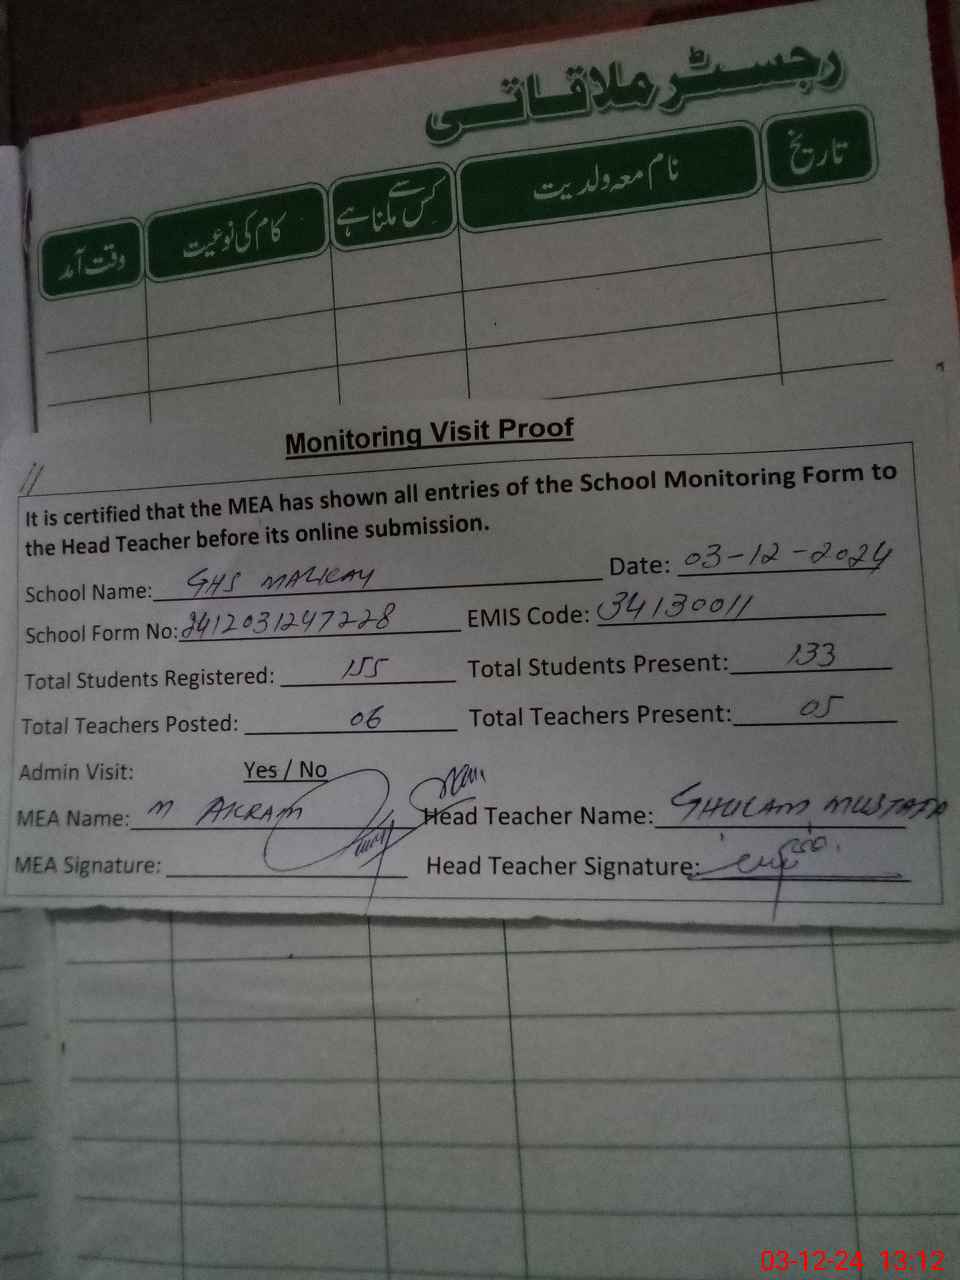 رجسٹر ملاقاتی
تاریخ نام معہ ولدیت کس سے ملنا ہے کام کی نوعیت وقت آمد
Monitoring Visit Proof
It is certified that the MEA has shown all entries of the School Monitoring Form to
the Head Teacher before its online submission.
School Name: GHS MALKAY Date: 03-12-2024
School Form No: 2412031247228 EMIS Code: 34130011
Total Students Registered: 155 Total Students Present: 133
Total Teachers Posted: 06 Total Teachers Present: 05
Admin Visit: Yes / No
MEA Name: M AKRAM Head Teacher Name: GHULAM MUSTAFA
MEA Signature: Head Teacher Signature:
03-12-24 13:12